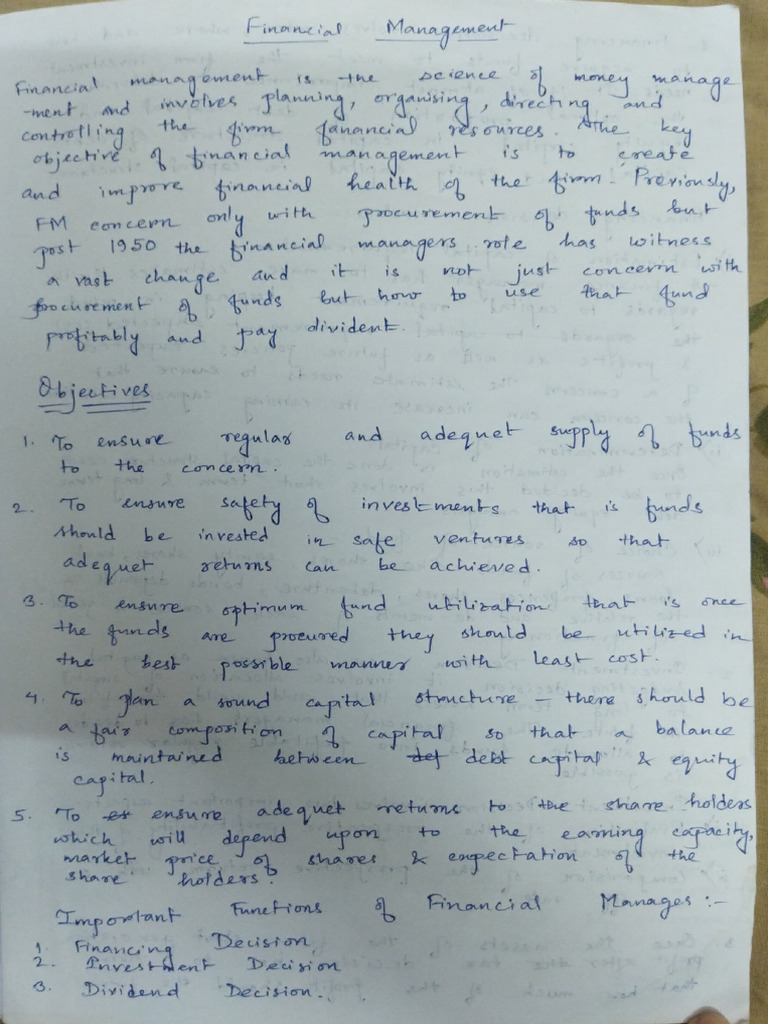 Financial Management
Financial management is the science of money manage
-ment and involves planning, organising, directing and
controlling the firm fanancial resources. The key
objective of financial management is to create
and improve financial health of the firm. Previously,
FM concern only with procurement of funds but
post 1950 the financial managers role has witness
a vast change and it is not just concern with
procurement of funds but how to use that fund
profitably and pay divident.
Objectives
1. To ensure regular and adequet supply of funds
to the concern.
2. To ensure safety of investments that is funds
should be invested in safe ventures so that
adequet returns can be achieved.
3. To ensure optimum fund utilization that is once
the funds are procured they should be utilized in
the best possible manner with least cost.
4. To plan a sound capital structure - there should be
a fair composition of capital so that a balance
is maintained between debt capital & equity
capital.
5. To ensure adequet returns to the share holders
which will depend upon to the earning capacity,
market price of shares & expectation of the
share holders.
Important Functions of Financial Manages :-
1. Financing Decision
2. Investment Decision
3. Dividend Decision.